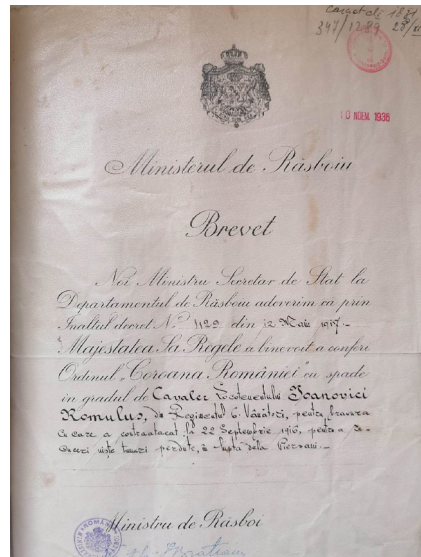 347/1239
10 NOEM. 1936
Ministerul de Răsboiu
Brevet
Noi Ministru Secretar de Stat la
Departamentul de Răsboiu adeverim că prin
Inaltul decret No 1129 din 12 Maiu 1917.-
Majestatea Sa Regele a binevoit a conferi
Ordinul „Coroana României" cu spade
in gradul de Cavaler Locotenentului Ioanovici
Romulus, din Regimentul 6. Vânători, pentru bravura
cu care a contraatacat la 22 Septembrie 1916, pentru a
nişte tranşee pierdute, lupta dela
Ministru de Răsboi